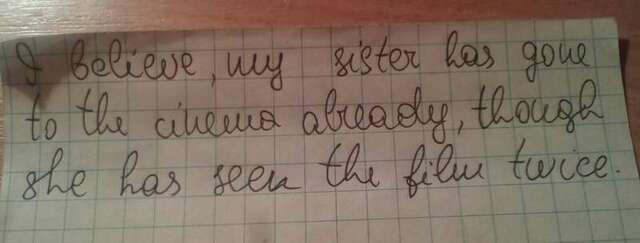 I believe, my sister has gone
to the cinema already, though
she has seen the film twice.